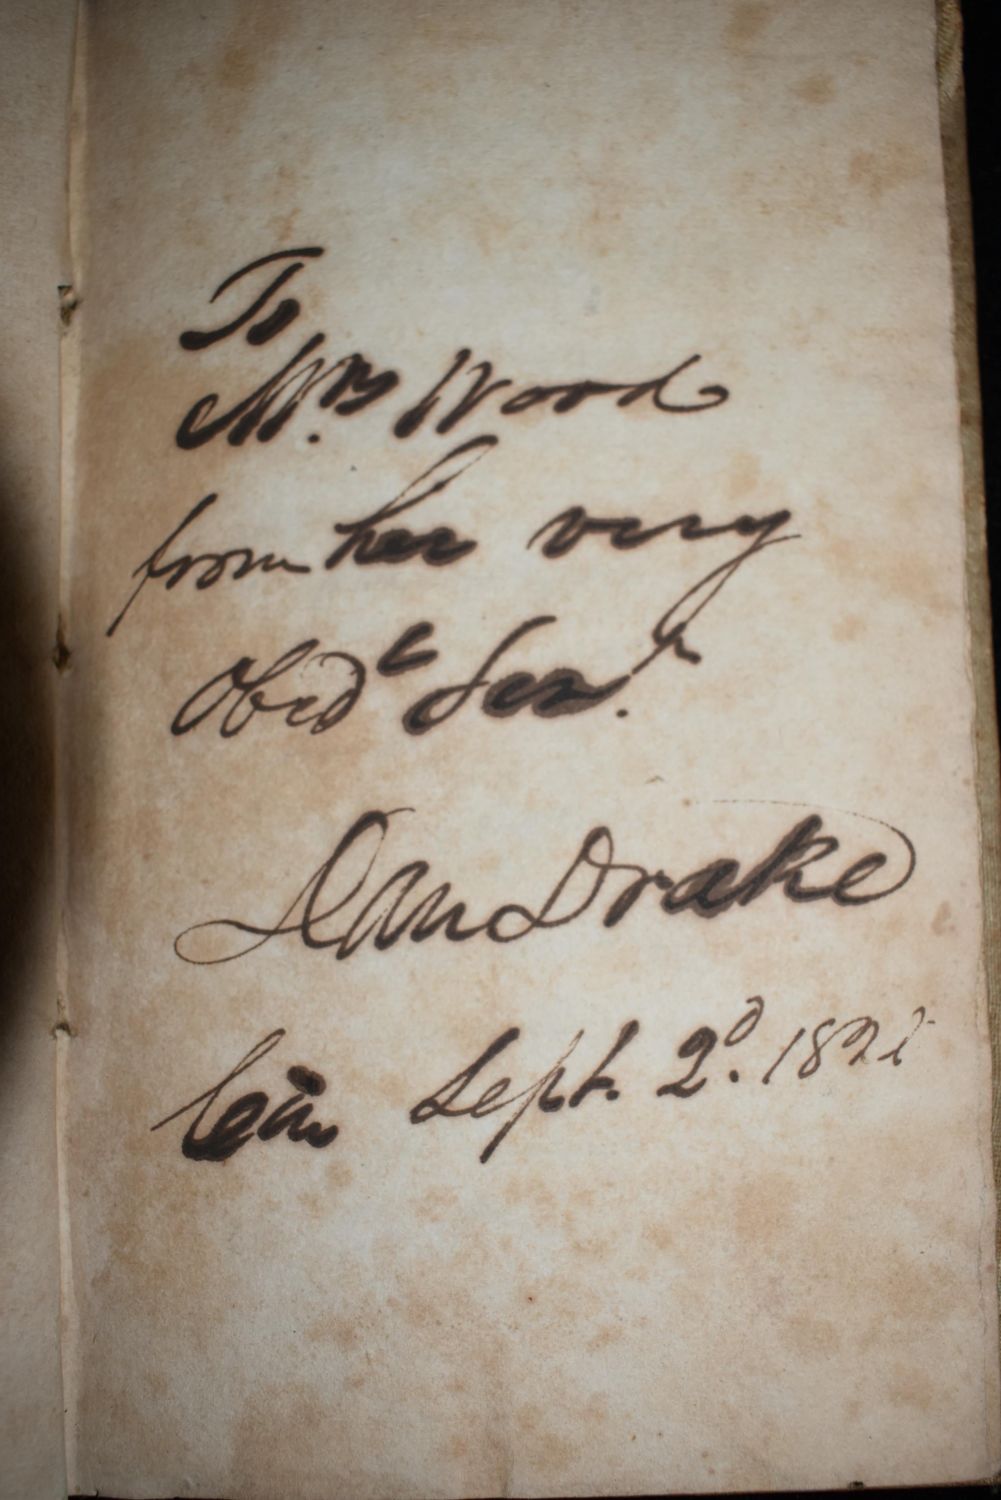 To
Mrs Wood
from her very
Obedt Servt
Dan Drake
Cin. Sept. 2d. 1822